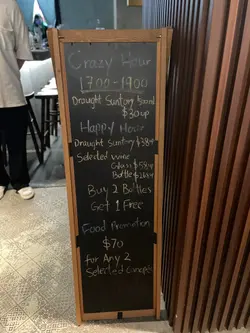 Crazy Hour
1700-1900
Draught Suntory
$30up
Happy Hour
Draught Suntory $38+
Selected wine
Glass
Bottle
Buy 2 Bottles
Get 1 Free
Food Promotion
$70
for Any 2
Selected